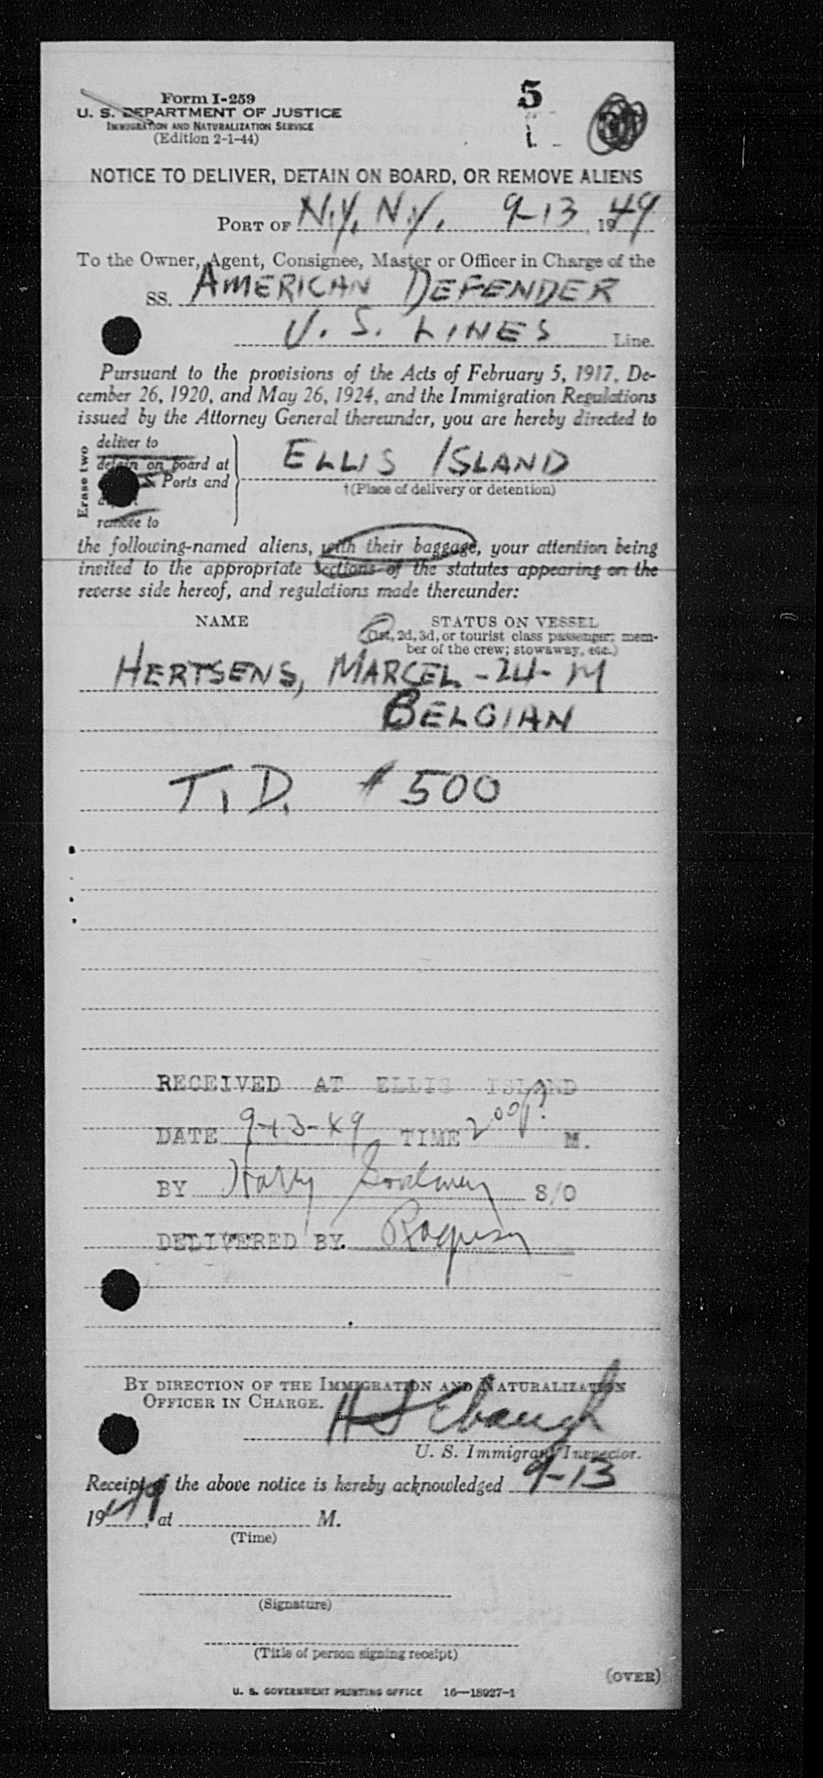 5
Form I-259
U. S. DEPARTMENT OF JUSTICE
IMMIGRATION AND NATURALIZATION SERVICE
(Edition 2-1-44)
NOTICE TO DELIVER, DETAIN ON BOARD, OR REMOVE ALIENS
PORT OF N.Y. N.Y. 9-13, 1949
To the Owner, Agent, Consignee, Master or Officer in Charge of the
SS. AMERICAN DEFENDER
U. S. LINES Line.
Pursuant to the provisions of the Acts of February 5, 1917, De-
cember 26, 1920, and May 26, 1924, and the Immigration Regulations
issued by the Attorney General thereunder, you are hereby directed to
Erase two
deliver to
detain on board at
Ports and
remove to
ELLIS ISLAND
†(Place of delivery or detention)
the following-named aliens, with their baggage, your attention being
invited to the appropriate sections of the statutes appearing on the
reverse side hereof, and regulations made thereunder:
NAME STATUS ON VESSEL
(1st, 2d, 3d, or tourist class passenger; mem-
ber of the crew; stowaway, etc.)
HERTSENS, MARCEL - 24 - M
BELGIAN
T. D. $500
RECEIVED AT ELLIS ISLAND
DATE 9-13-49 TIME 2:00 P. M.
BY Harry S/O
DELIVERED BY
BY DIRECTION OF THE IMMIGRATION AND NATURALIZATION
OFFICER IN CHARGE.
H S Ebaugh
U. S. Immigrant Inspector.
Receipt of the above notice is hereby acknowledged 9-13
1949, at M.
(Time)
(Signature)
(Title of person signing receipt)
(OVER)
U. S. GOVERNMENT PRINTING OFFICE 16—18927-1